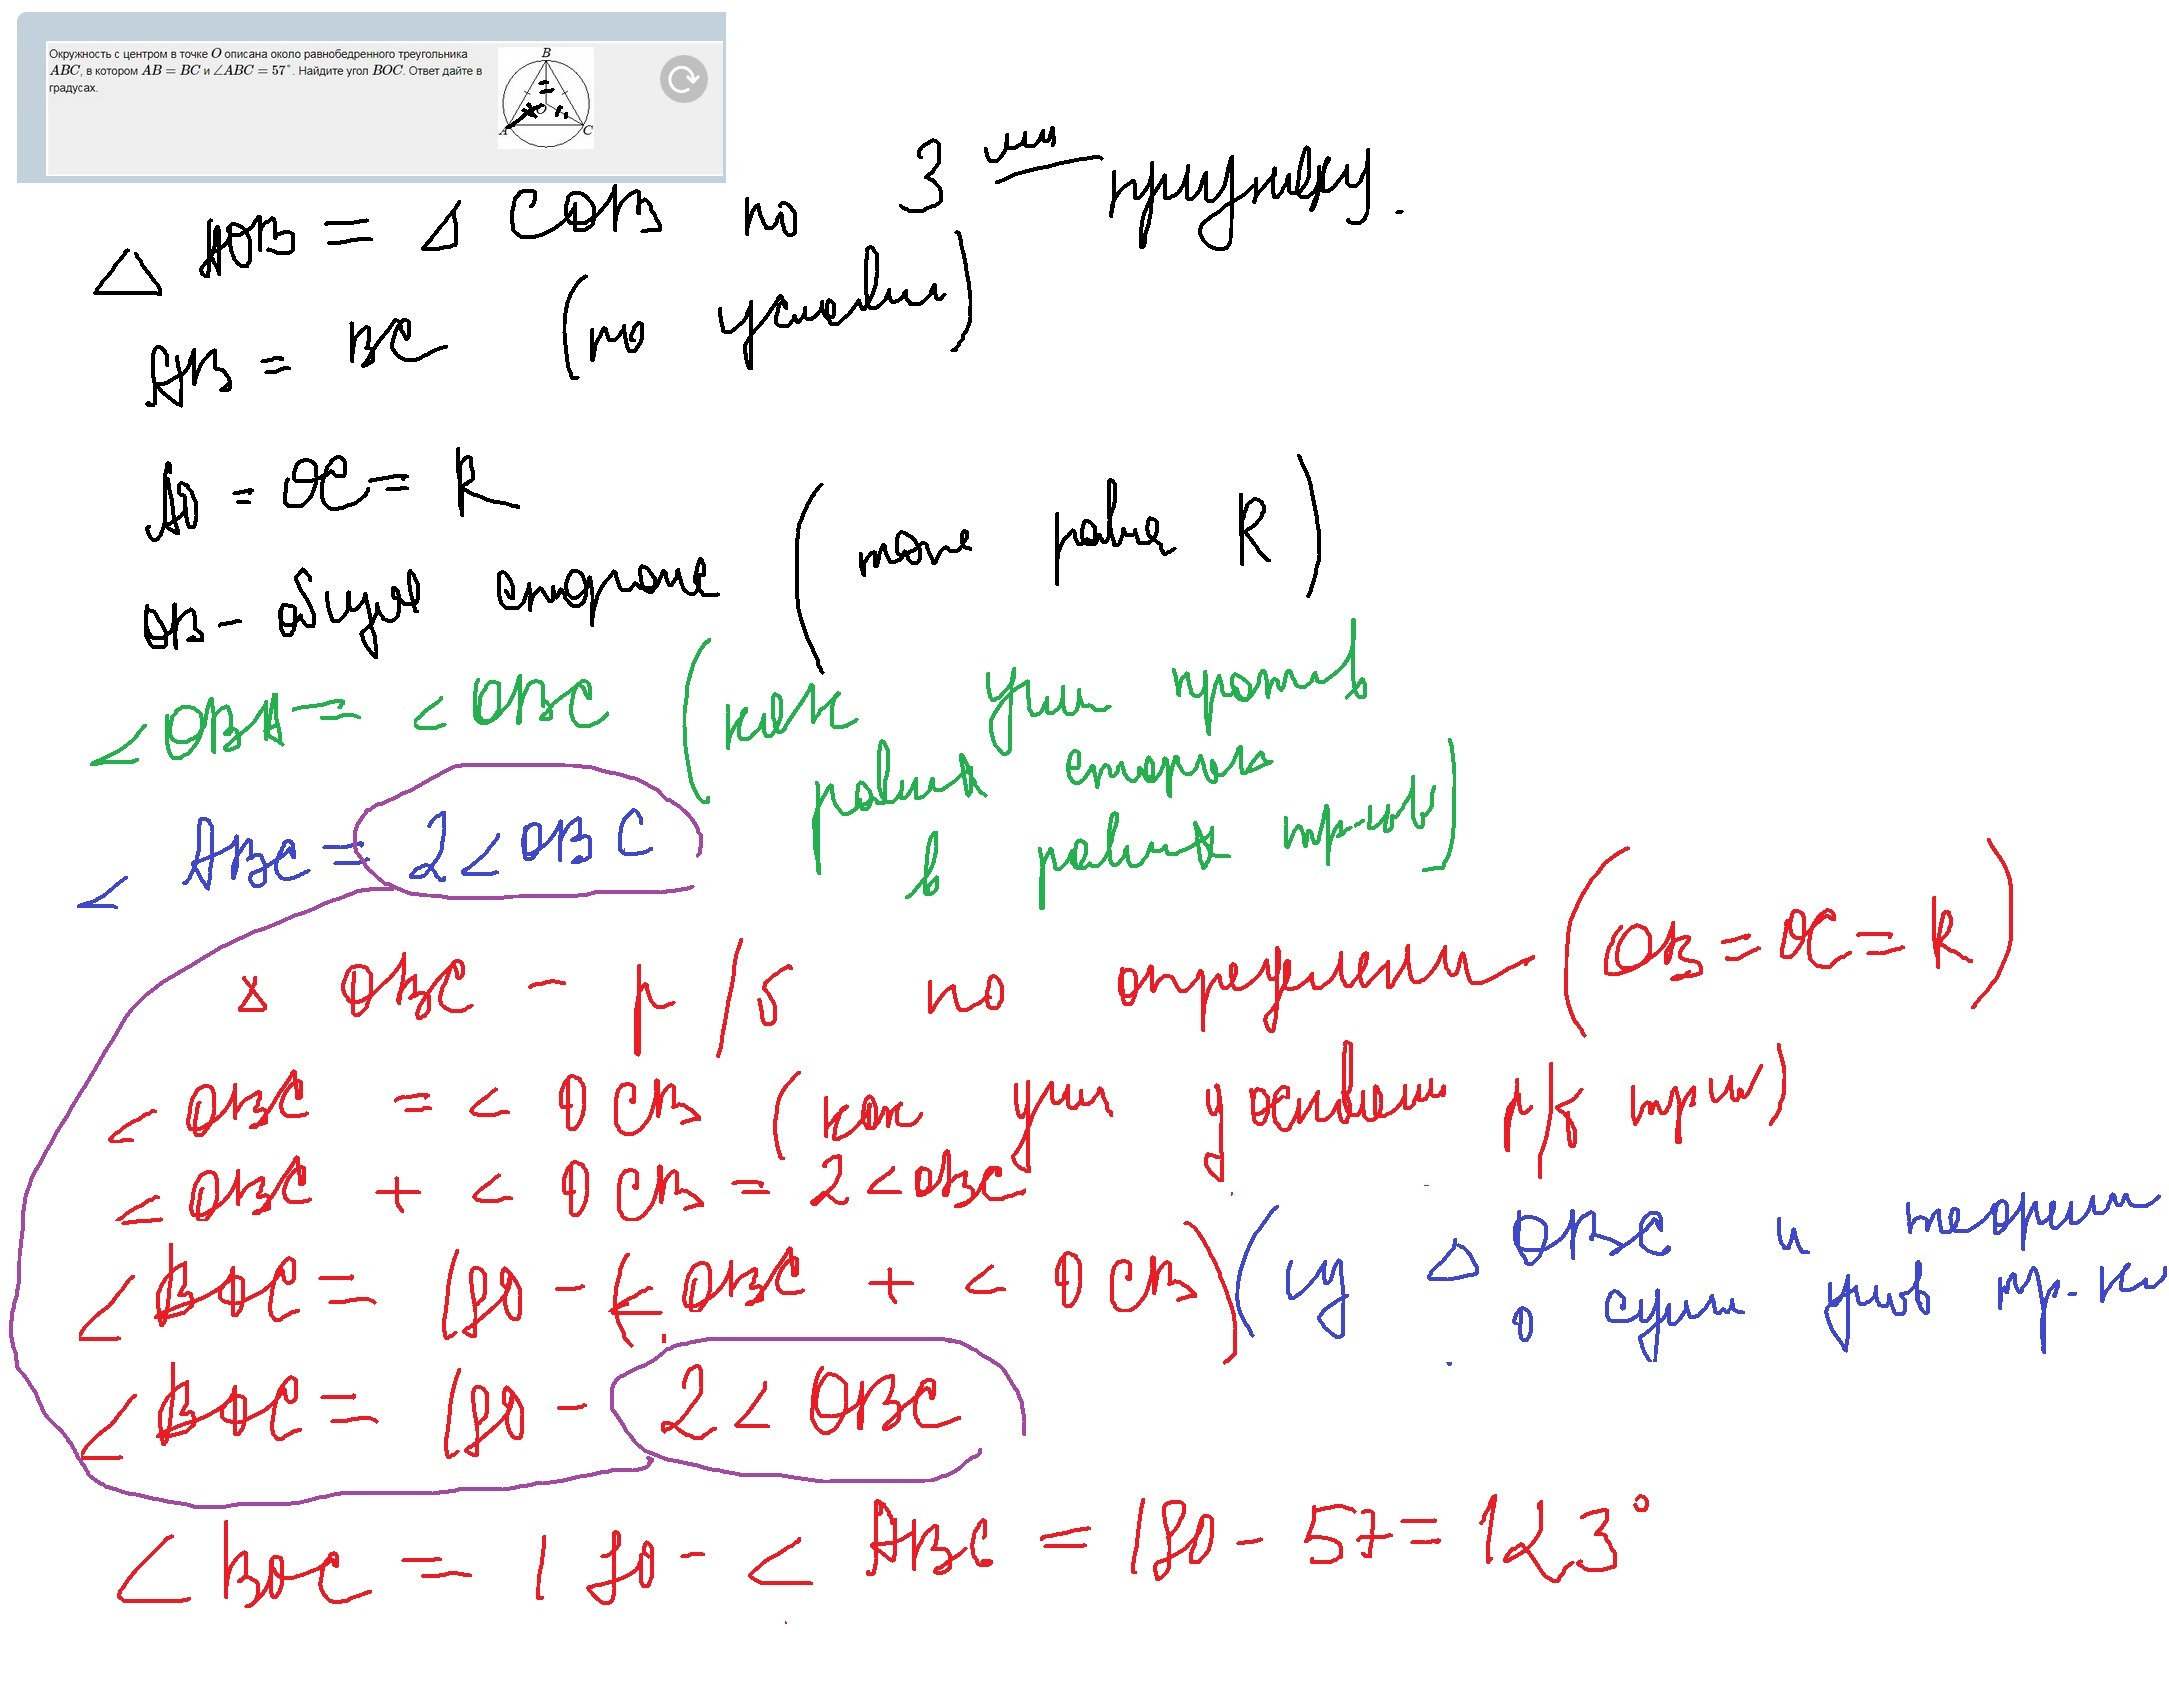 Окружность с центром в точке O описана около равнобедренного треугольника
ABC, в котором AB = BC и ∠ABC = 57°. Найдите угол BOC. Ответ дайте в
градусах.
B
O
A
C
△ AOB = △ COB по 3 признаку.
AB = BC (по условию)
AO = OC = R
OB - общая сторона (тоже равна R)
∠OBA = ∠OBC (как углы против
равных сторон
в равных тр-ков)
∠ ABC = 2∠OBC
△ OBC - р/б по определению (OB = OC = R)
∠OBC = ∠OCB (как углы у основания р/б тр-ка)
∠OBC + ∠OCB = 2∠OBC
∠BOC = 180 - (∠OBC + ∠OCB) (из △ OBC и теоремы
о сумме углов тр-ка
∠BOC = 180 - 2∠OBC
∠BOC = 180 - ∠ABC = 180 - 57 = 123°